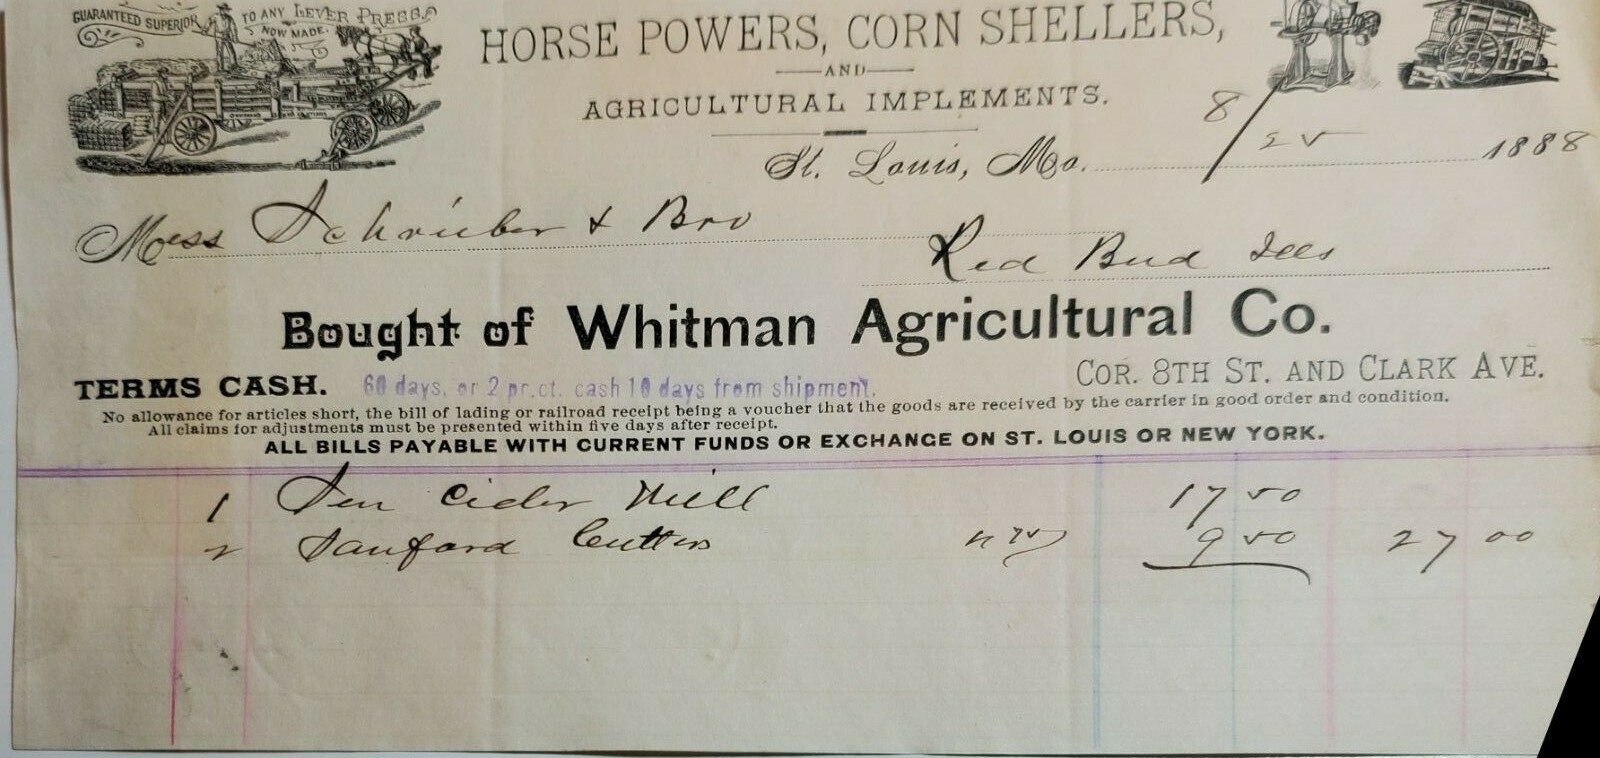 GUARANTEED SUPERIOR TO ANY LEVER PRESS NOW MADE.
HORSE POWERS, CORN SHELLERS,
AND
AGRICULTURAL IMPLEMENTS.
St. Louis, Mo. 8/25 1888
Mess Schrieber & Bro
Red Bud Ills
Bought of Whitman Agricultural Co.
COR. 8TH ST. AND CLARK AVE.
TERMS CASH. 60 days, or 2 pr. ct. cash 10 days from shipment.
No allowance for articles short, the bill of lading or railroad receipt being a voucher that the goods are received by the carrier in good order and condition.
All claims for adjustments must be presented within five days after receipt.
ALL BILLS PAYABLE WITH CURRENT FUNDS OR EXCHANGE ON ST. LOUIS OR NEW YORK.
1 Sen Cider Mill 17 50
2 Sanford Cutters 9 50 27 00